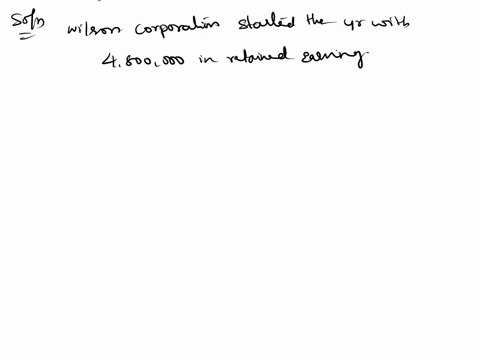 Soln Wilson Corporation started the yr with
4,800,000 in retained earning